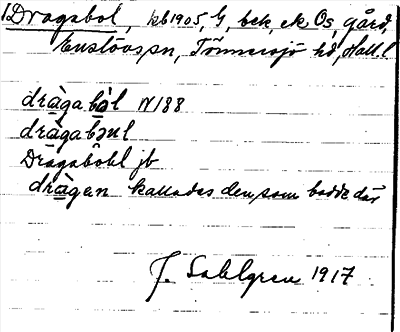 1 Dragsbol, kb1905, G, bek, ek Os, gård,
Enslövs sn, Tönnersjö hd, Hall. l.
dràgabòl N188
dràgabɔul
Dragabohl jb
dràgen kallades den, som bodde där
J. Sahlgren 1917